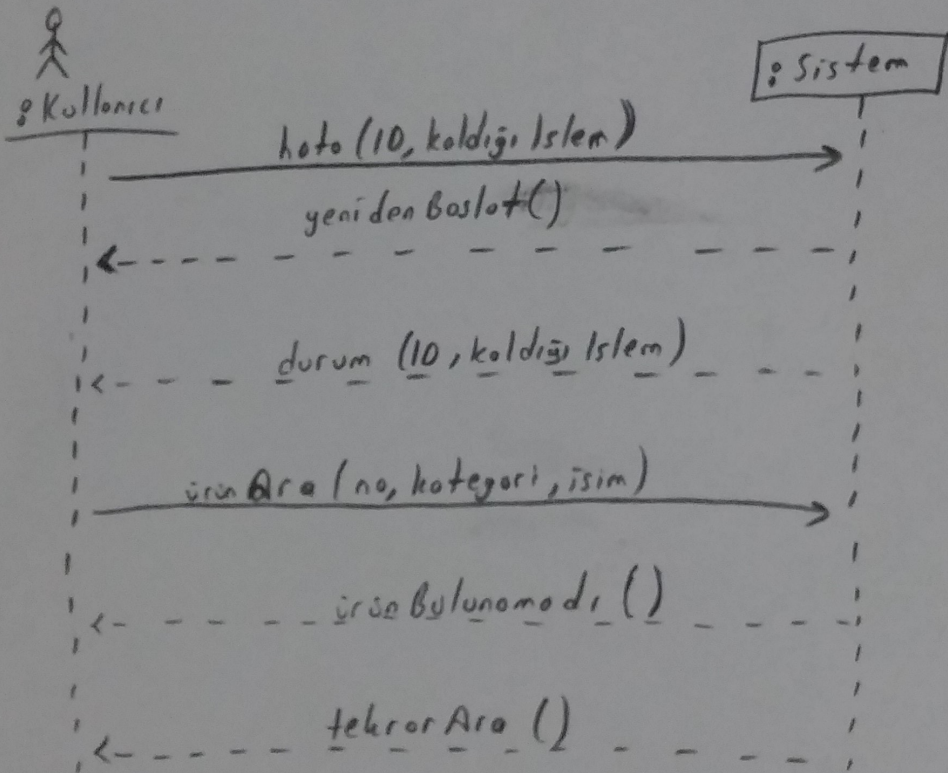 :Kullanıcı
:Sistem
hata (10, kaldığı Islem)
yeniden Baslat()
durum (10, kaldığı Islem)
ürün Ara (no, kategori, isim)
ürün Bulunamadı ()
tekrar Ara ()